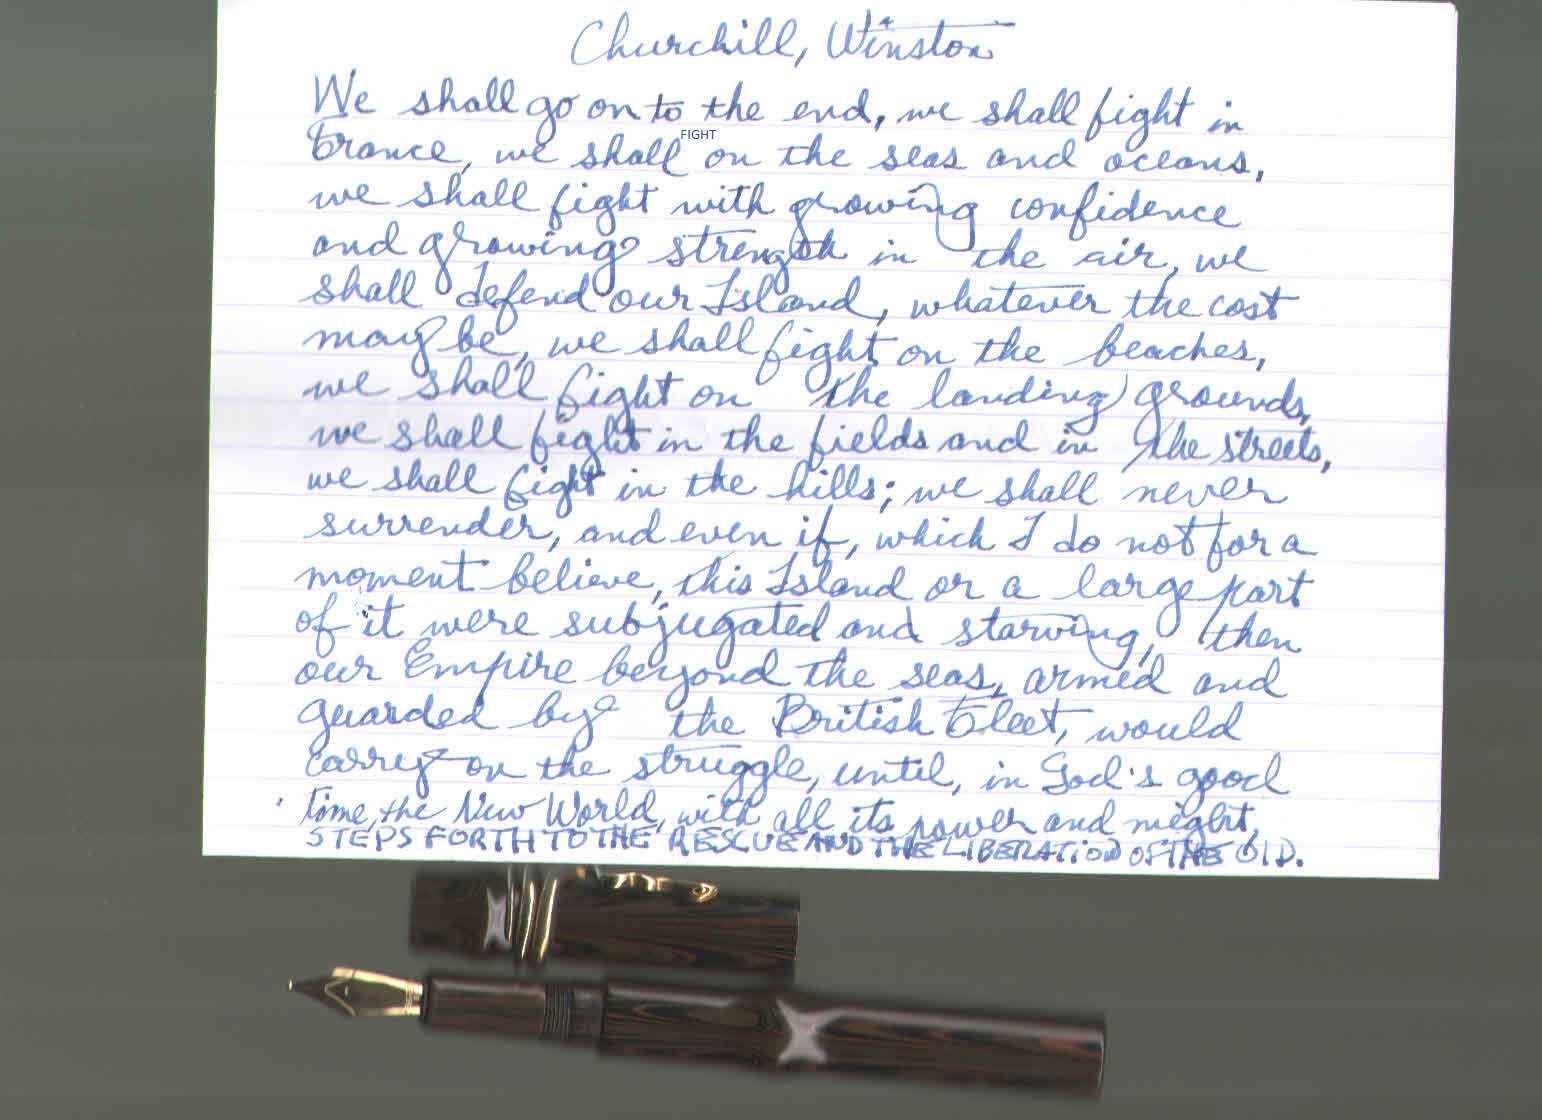 Churchill, Winston
We shall go on to the end, we shall fight in
France, we shall FIGHT on the seas and oceans,
we shall fight with growing confidence
and growing strength in the air, we
shall defend our Island, whatever the cost
may be, we shall fight on the beaches,
we shall fight on the landing grounds,
we shall fight in the fields and in the streets,
we shall fight in the hills; we shall never
surrender, and even if, which I do not for a
moment believe, this Island or a large part
of it were subjugated and starving, then
our Empire beyond the seas, armed and
guarded by the British Fleet, would
carry on the struggle, until, in God's good
time, the New World, with all its power and might,
STEPS FORTH TO THE RESCUE AND THE LIBERATION OF THE OLD.